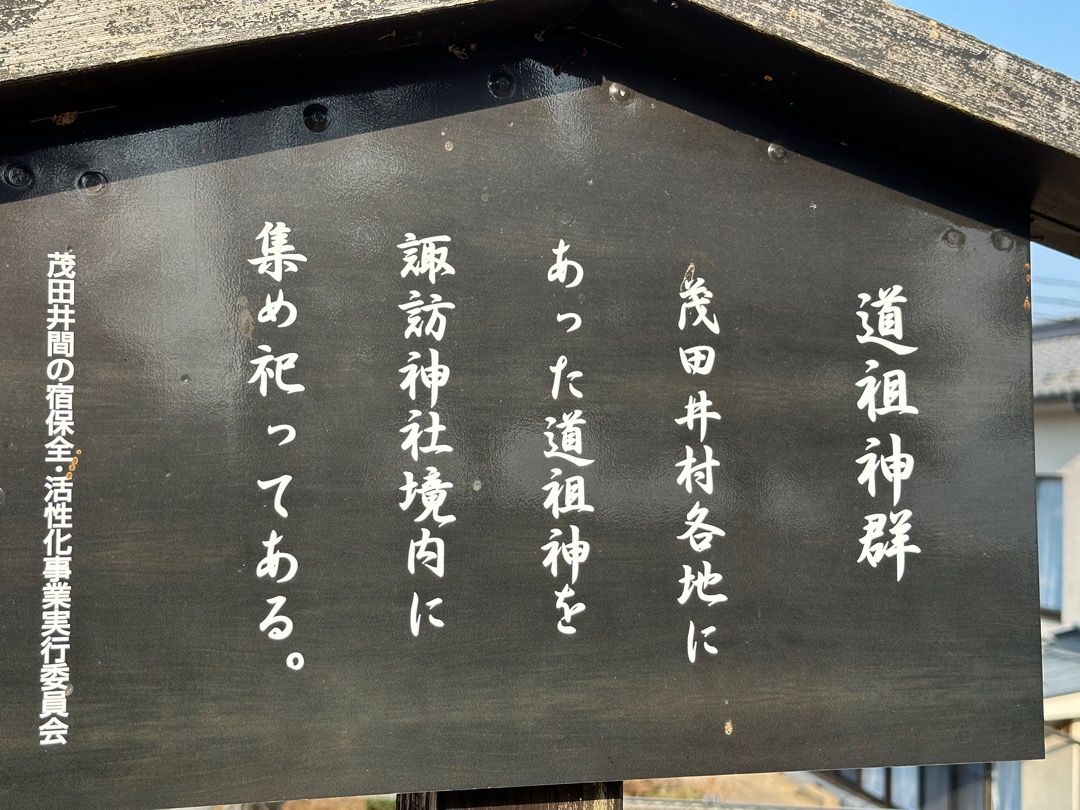 道祖神群
茂田井村各地に
あった道祖神を
諏訪神社境内に
集め祀ってある。
茂田井間の宿保全・活性化事業実行委員会